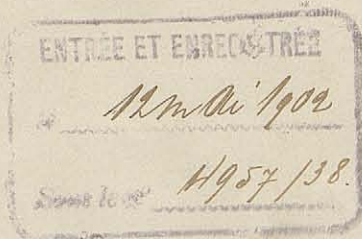 ENTRÉE ET ENREGISTRÉE
le 12 mai 1902
Sous le Nº 4957/38.